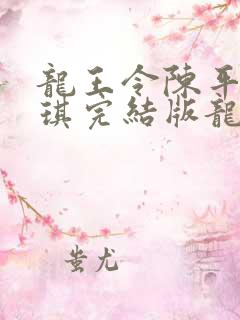 龍王令陳平
琪完結版龍
蚩尤